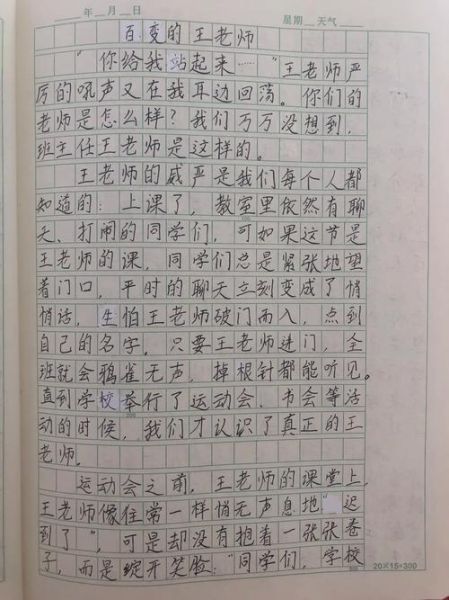 年 月 日 星期 天气
百变的王老师
“你给我站起来……”王老师严
厉的吼声又在我耳边回荡。你们的
老师是怎么样？我们万万没想到，
班主任王老师是这样的。
王老师的威严是我们每个人都
知道的：上课了，教室里依然有聊
天、打闹的同学们，可如果这节是
王老师的课，同学们总是紧张地望
着门口，平时的聊天立刻变成了悄
悄话，生怕王老师破门而入，点到
自己的名字。只要王老师进门，全
班就会鸦雀无声，掉根针都能听见。
直到学校举行了运动会、书会等活
动的时候，我们才认识了真正的王
老师。
运动会之前，王老师的课堂上，
王老师像往常一样悄无声息地“迟
到了”，可是却没有抱着一张张卷
子，而是绽开笑脸：“同学们，学校
20×15=300